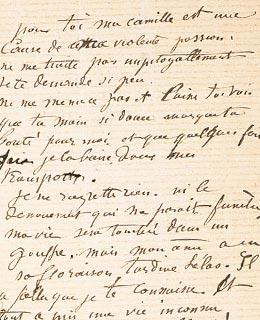 pour toi ma camille est une
Cause de cette violente passion.
ne me traite pas impitoyablement
je te demande si peu.
ne me menace pas et laisse toi voir
que ta main si douce marque ta
bonté pour moi et que quelques fois
je la baise dans mes
transports.
je ne regrette rien. ni le
denouement qui me parait funèbre
ma vie sera tombée dans un
gouffre. mais mon ame a eu
sa floraison, tardive hélas. Il
a fallu que je te connaisse et
tout a pris une vie inconnu